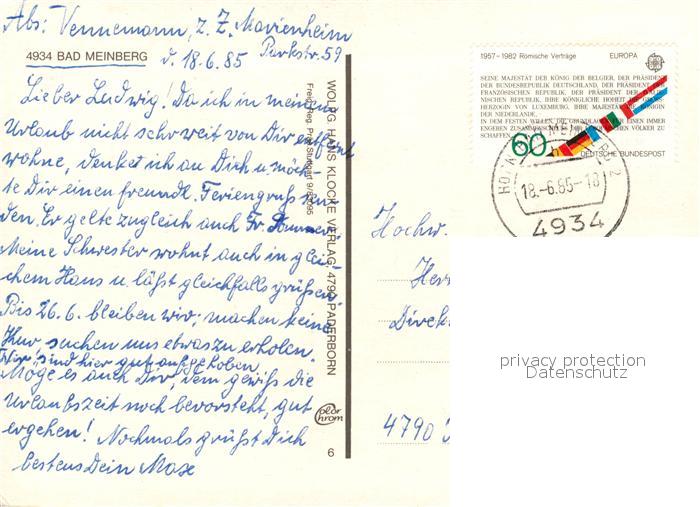 Abs: Vennemann, z. Z. Marienheim
Parkstr. 59
4934 BAD MEINBERG
d. 18.6.85
Lieber Ludwig! Da ich in meinem
Urlaub nicht sehr weit von Dir entfernt
wohne, denket ich an Dich u. möch-
te Dir einen freundl. Feriengruß sen-
den. Er gelte zugleich auch Fr.
Meine Schwester wohnt auch im glei-
chem Haus u. läßt gleichfalls grüßen.
Bis 26.6. bleiben wir; machen keine
Kur, suchen uns etwas zu erholen.
Wir sind hier gut aufgehoben.
Möge es auch Dir, dem gewiß die
Urlaubszeit noch bevorsteht, gut
ergehen! Nochmals grüßt Dich
bestens Dein Max
WOLFG. HANS KLOCKE VERLAG, 4790 PADERBORN
Freig. Reg. Präs. Stuttgart
color
chrom
6
1957–1982 Römische Verträge EUROPA
SEINE MAJESTÄT DER KÖNIG DER BELGIER, DER PRÄSIDENT
DER BUNDESREPUBLIK DEUTSCHLAND, DER PRÄSIDENT DER
FRANZÖSISCHEN REPUBLIK, DER PRÄSIDENT DER ITALIE-
NISCHEN REPUBLIK, IHRE KÖNIGLICHE HOHEIT DIE GROSS-
HERZOGIN VON LUXEMBURG, IHRE MAJESTÄT DIE KÖNIGIN
DER NIEDERLANDE,
IN DEM FESTEN WILLEN, DIE GRUNDLAGEN FÜR EINEN IMMER
ENGEREN ZUSAMMENSCHLUSS DER EUROPÄISCHEN VÖLKER ZU
SCHAFFEN
60
DEUTSCHE BUNDESPOST
18.-6.85-18
4934
Hochw.
Her
Direk
4790
privacy protection
Datenschutz